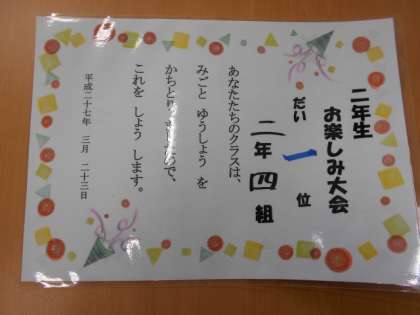 二年生
お楽しみ大会
だい 一 位
二年 四 組
あなたたちのクラスは、
みごと ゆうしょう を
かちとりましたので、
これを しょう します。
平成二十七年 三月 二十三日